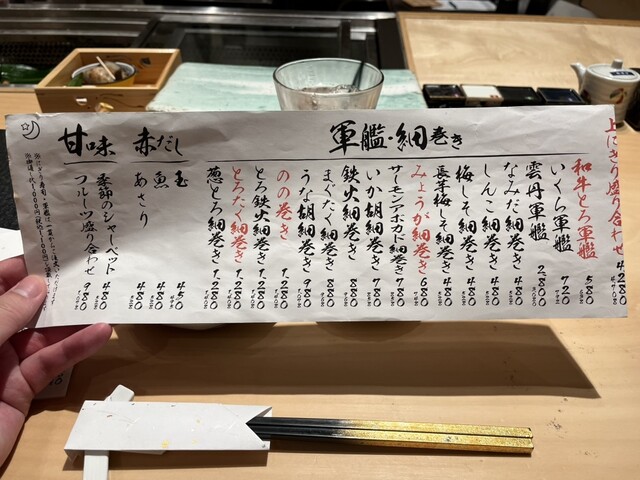 上にぎり盛り合わせ 4.280
軍艦・細巻き
和牛とろ軍艦 580
いくら軍艦 720
雲丹軍艦 2.80
なみだ細巻き 480
しんこ細巻き 480
梅しそ細巻き 480
長芋梅しそ細巻き 480
みょうが細巻き 680
サーモンアボカド細巻き 780
いか胡細巻き 780
鉄火細巻き 780
まぐたく細巻き 880
うな胡細巻き 980
のの巻き 1.280
とろ鉄火細巻き 1.280
とろたく細巻き 1.280
葱とろ細巻き 1.280
赤だし
玉 450
魚 480
あさり 480
甘味
季節のシャーベット 480
フルーツ盛り合わせ 980